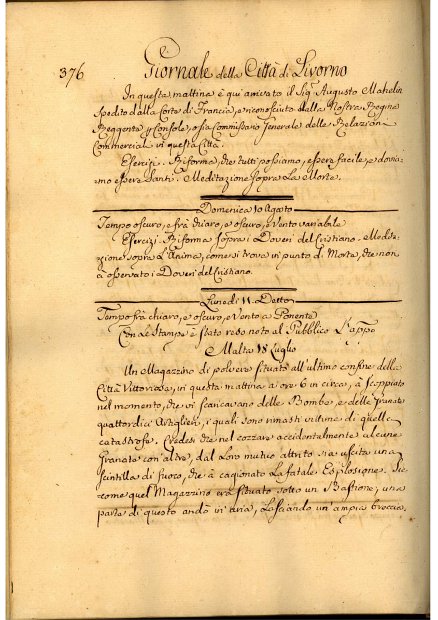 376 Giornale della Città di Livorno
In questa mattina è qui arrivato il Sig. Augusto Mahelin
spedito dalla Corte di Francia, e riconosciuto dalla Nostra Regina
Reggente p Console, o sia Commissario Generale delle Relazioni
Commerciali in questa Città.
Esercizi. Riforma, che tutti possiamo, essere facile, e dovia-
mo essere Santi. Meditazione sopra La Morte.
Domenica 10 Agosto
Tempo oscuro, e frà chiaro, e oscuro, e Vento variabile
Esercizi. Riforma sopra i Doveri del Cristiano. Medita-
zione sopra L'Anima, come si trova in punto di Morte, che non
à osservato i Doveri del Cristiano.
Lunedi 11. Detto
Tempo frà chiaro, e oscuro, e Vento a Ponente
Con Le Stampe è stato reso noto al Pubblico L'appo
Malta 18 Luglio
Un Magazzino di polvere situato all'ultimo confine della
Città Vittoriosa, in questa mattina a ore 6 in circa, à scoppiato
nel momento, che vi scaricavano delle Bombe, e delle Granate
quattordici Artiglieri, i quali sono rimasti vittime di quella
catastrofe. Credesi che nel cozzare accidentalmente alcune
Granate con altre, dal Loro mutuo attrito sia uscita una
scintilla di fuoco, che à cagionato La fatale Esplosione. Sic-
come quel Magazzino era situato sotto un Bastione, una
parte di questo andò in aria, Lasciando un'ampia breccia.